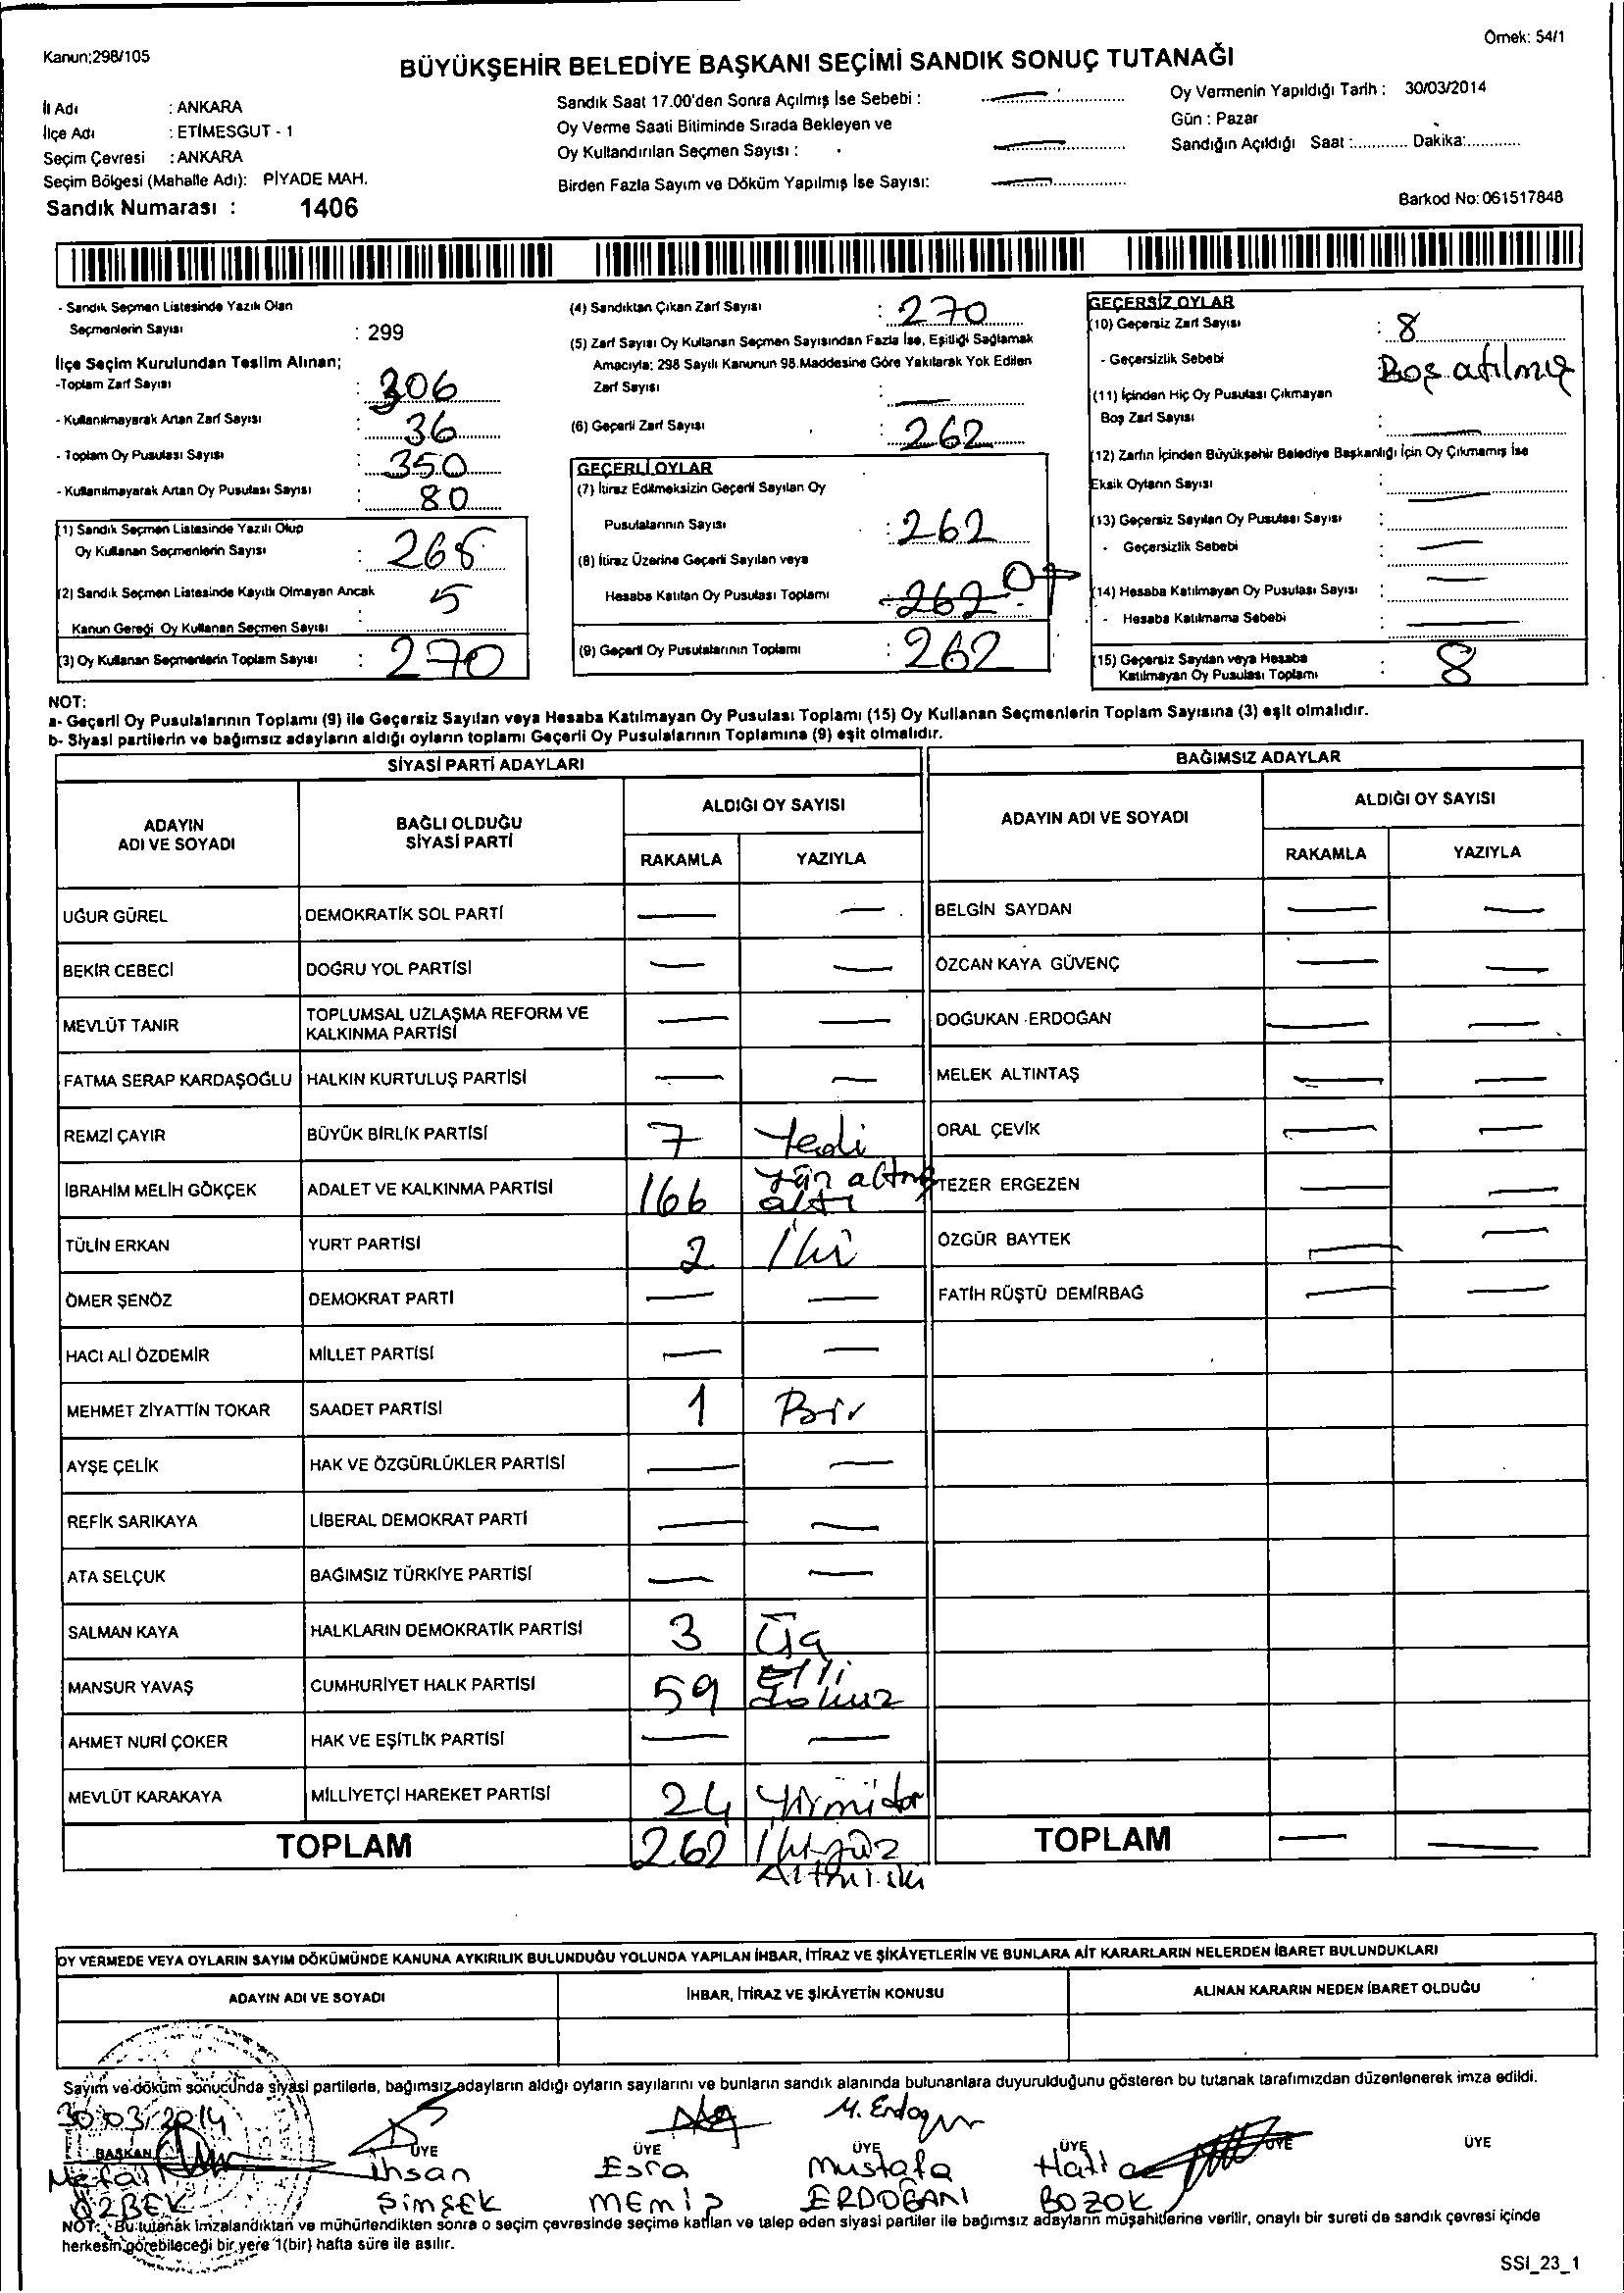 Kanun;298/105
Örnek: 54/1
BÜYÜKŞEHİR BELEDİYE BAŞKANI SEÇİMİ SANDIK SONUÇ TUTANAĞI
İl Adı : ANKARA
İlçe Adı : ETİMESGUT - 1
Seçim Çevresi : ANKARA
Seçim Bölgesi (Mahalle Adı): PİYADE MAH.
Sandık Numarası : 1406
Sandık Saat 17.00'den Sonra Açılmış İse Sebebi : —
Oy Verme Saati Bitiminde Sırada Bekleyen ve
Oy Kullandırılan Seçmen Sayısı : —
Birden Fazla Sayım ve Döküm Yapılmış İse Sayısı: —
Oy Vermenin Yapıldığı Tarih : 30/03/2014
Gün : Pazar
Sandığın Açıldığı Saat :............ Dakika:............
Barkod No: 061517848
- Sandık Seçmen Listesinde Yazılı Olan
Seçmenlerin Sayısı : 299
İlçe Seçim Kurulundan Teslim Alınan;
-Toplam Zarf Sayısı : 306
- Kullanılmayarak Artan Zarf Sayısı : 36
- Toplam Oy Pusulası Sayısı : 350
- Kullanılmayarak Artan Oy Pusulası Sayısı : 80
(1) Sandık Seçmen Listesinde Yazılı Olup
Oy Kullanan Seçmenlerin Sayısı : 265
(2) Sandık Seçmen Listesinde Kayıtlı Olmayan Ancak
Kanun Gereği Oy Kullanan Seçmen Sayısı : 5
(3) Oy Kullanan Seçmenlerin Toplam Sayısı : 270
(4) Sandıktan Çıkan Zarf Sayısı : 270
(5) Zarf Sayısı Oy Kullanan Seçmen Sayısından Fazla İse, Eşitliği Sağlamak
Amacıyla; 298 Sayılı Kanunun 98.Maddesine Göre Yakılarak Yok Edilen
Zarf Sayısı : —
(6) Geçerli Zarf Sayısı : 262
GEÇERLİ OYLAR
(7) İtiraz Edilmeksizin Geçerli Sayılan Oy
Pusulalarının Sayısı : 262
(8) İtiraz Üzerine Geçerli Sayılan veya
Hesaba Katılan Oy Pusulası Toplamı 262 0
(9) Geçerli Oy Pusulalarının Toplamı : 262
GEÇERSİZ OYLAR
(10) Geçersiz Zarf Sayısı : 8
- Geçersizlik Sebebi Boş atılmış
(11) İçinden Hiç Oy Pusulası Çıkmayan
Boş Zarf Sayısı : —
(12) Zarfın İçinden Büyükşehir Belediye Başkanlığı İçin Oy Çıkmamış İse
Eksik Oyların Sayısı : —
(13) Geçersiz Sayılan Oy Pusulası Sayısı : —
- Geçersizlik Sebebi : —
(14) Hesaba Katılmayan Oy Pusulası Sayısı : —
- Hesaba Katılmama Sebebi : —
(15) Geçersiz Sayılan veya Hesaba
Katılmayan Oy Pusulası Toplamı : 8
NOT:
a- Geçerli Oy Pusulalarının Toplamı (9) ile Geçersiz Sayılan veya Hesaba Katılmayan Oy Pusulası Toplamı (15) Oy Kullanan Seçmenlerin Toplam Sayısına (3) eşit olmalıdır.
b- Siyasi partilerin ve bağımsız adayların aldığı oyların toplamı Geçerli Oy Pusulalarının Toplamına (9) eşit olmalıdır.
SİYASİ PARTİ ADAYLARI
ADAYIN ADI VE SOYADI
BAĞLI OLDUĞU SİYASİ PARTİ
ALDIĞI OY SAYISI
RAKAMLA YAZIYLA
UĞUR GÜREL DEMOKRATİK SOL PARTİ — —
BEKİR CEBECİ DOĞRU YOL PARTİSİ — —
MEVLÜT TANIR TOPLUMSAL UZLAŞMA REFORM VE KALKINMA PARTİSİ — —
FATMA SERAP KARDAŞOĞLU HALKIN KURTULUŞ PARTİSİ — —
REMZİ ÇAYIR BÜYÜK BİRLİK PARTİSİ 7 Yedi
İBRAHİM MELİH GÖKÇEK ADALET VE KALKINMA PARTİSİ 166 Yüz altmış altı
TÜLİN ERKAN YURT PARTİSİ 2 İki
ÖMER ŞENÖZ DEMOKRAT PARTİ — —
HACI ALİ ÖZDEMİR MİLLET PARTİSİ — —
MEHMET ZİYATTİN TOKAR SAADET PARTİSİ 1 Bir
AYŞE ÇELİK HAK VE ÖZGÜRLÜKLER PARTİSİ — —
REFİK SARIKAYA LİBERAL DEMOKRAT PARTİ — —
ATA SELÇUK BAĞIMSIZ TÜRKİYE PARTİSİ — —
SALMAN KAYA HALKLARIN DEMOKRATİK PARTİSİ 3 Üç
MANSUR YAVAŞ CUMHURİYET HALK PARTİSİ 59 Elli dokuz
AHMET NURİ ÇOKER HAK VE EŞİTLİK PARTİSİ — —
MEVLÜT KARAKAYA MİLLİYETÇİ HAREKET PARTİSİ 24 Yirmi dör
TOPLAM 262 İki yüz Altmı iki
BAĞIMSIZ ADAYLAR
ADAYIN ADI VE SOYADI
ALDIĞI OY SAYISI
RAKAMLA YAZIYLA
BELGİN SAYDAN — —
ÖZCAN KAYA GÜVENÇ — —
DOĞUKAN ERDOĞAN — —
MELEK ALTINTAŞ — —
ORAL ÇEVİK — —
TEZER ERGEZEN — —
ÖZGÜR BAYTEK — —
FATİH RÜŞTÜ DEMİRBAĞ — —
TOPLAM — —
OY VERMEDE VEYA OYLARIN SAYIM DÖKÜMÜNDE KANUNA AYKIRILIK BULUNDUĞU YOLUNDA YAPILAN İHBAR, İTİRAZ VE ŞİKÂYETLERİN VE BUNLARA AİT KARARLARIN NELERDEN İBARET BULUNDUKLARI
ADAYIN ADI VE SOYADI
İHBAR, İTİRAZ VE ŞİKÂYETİN KONUSU
ALINAN KARARIN NEDEN İBARET OLDUĞU
Sayım ve döküm sonucunda siyasi partilerle, bağımsız adayların aldığı oyların sayılarını ve bunların sandık alanında bulunanlara duyurulduğunu gösteren bu tutanak tarafımızdan düzenlenerek imza edildi.
30.03/2014
M. Erdoğan
BAŞKAN ÜYE ÜYE ÜYE ÜYE ÜYE ÜYE
İhsan Esra Mustafa
ÖZBEK ŞİMŞEK MEMİŞ ERDOĞAN BOZOK
NOT: Bu tutanak imzalandıktan ve mühürlendikten sonra o seçim çevresinde seçime katılan ve talep eden siyasi partiler ile bağımsız adayların müşahitlerine verilir, onaylı bir sureti de sandık çevresi içinde
herkesin görebileceği bir yere 1(bir) hafta süre ile asılır.
SSI_23_1